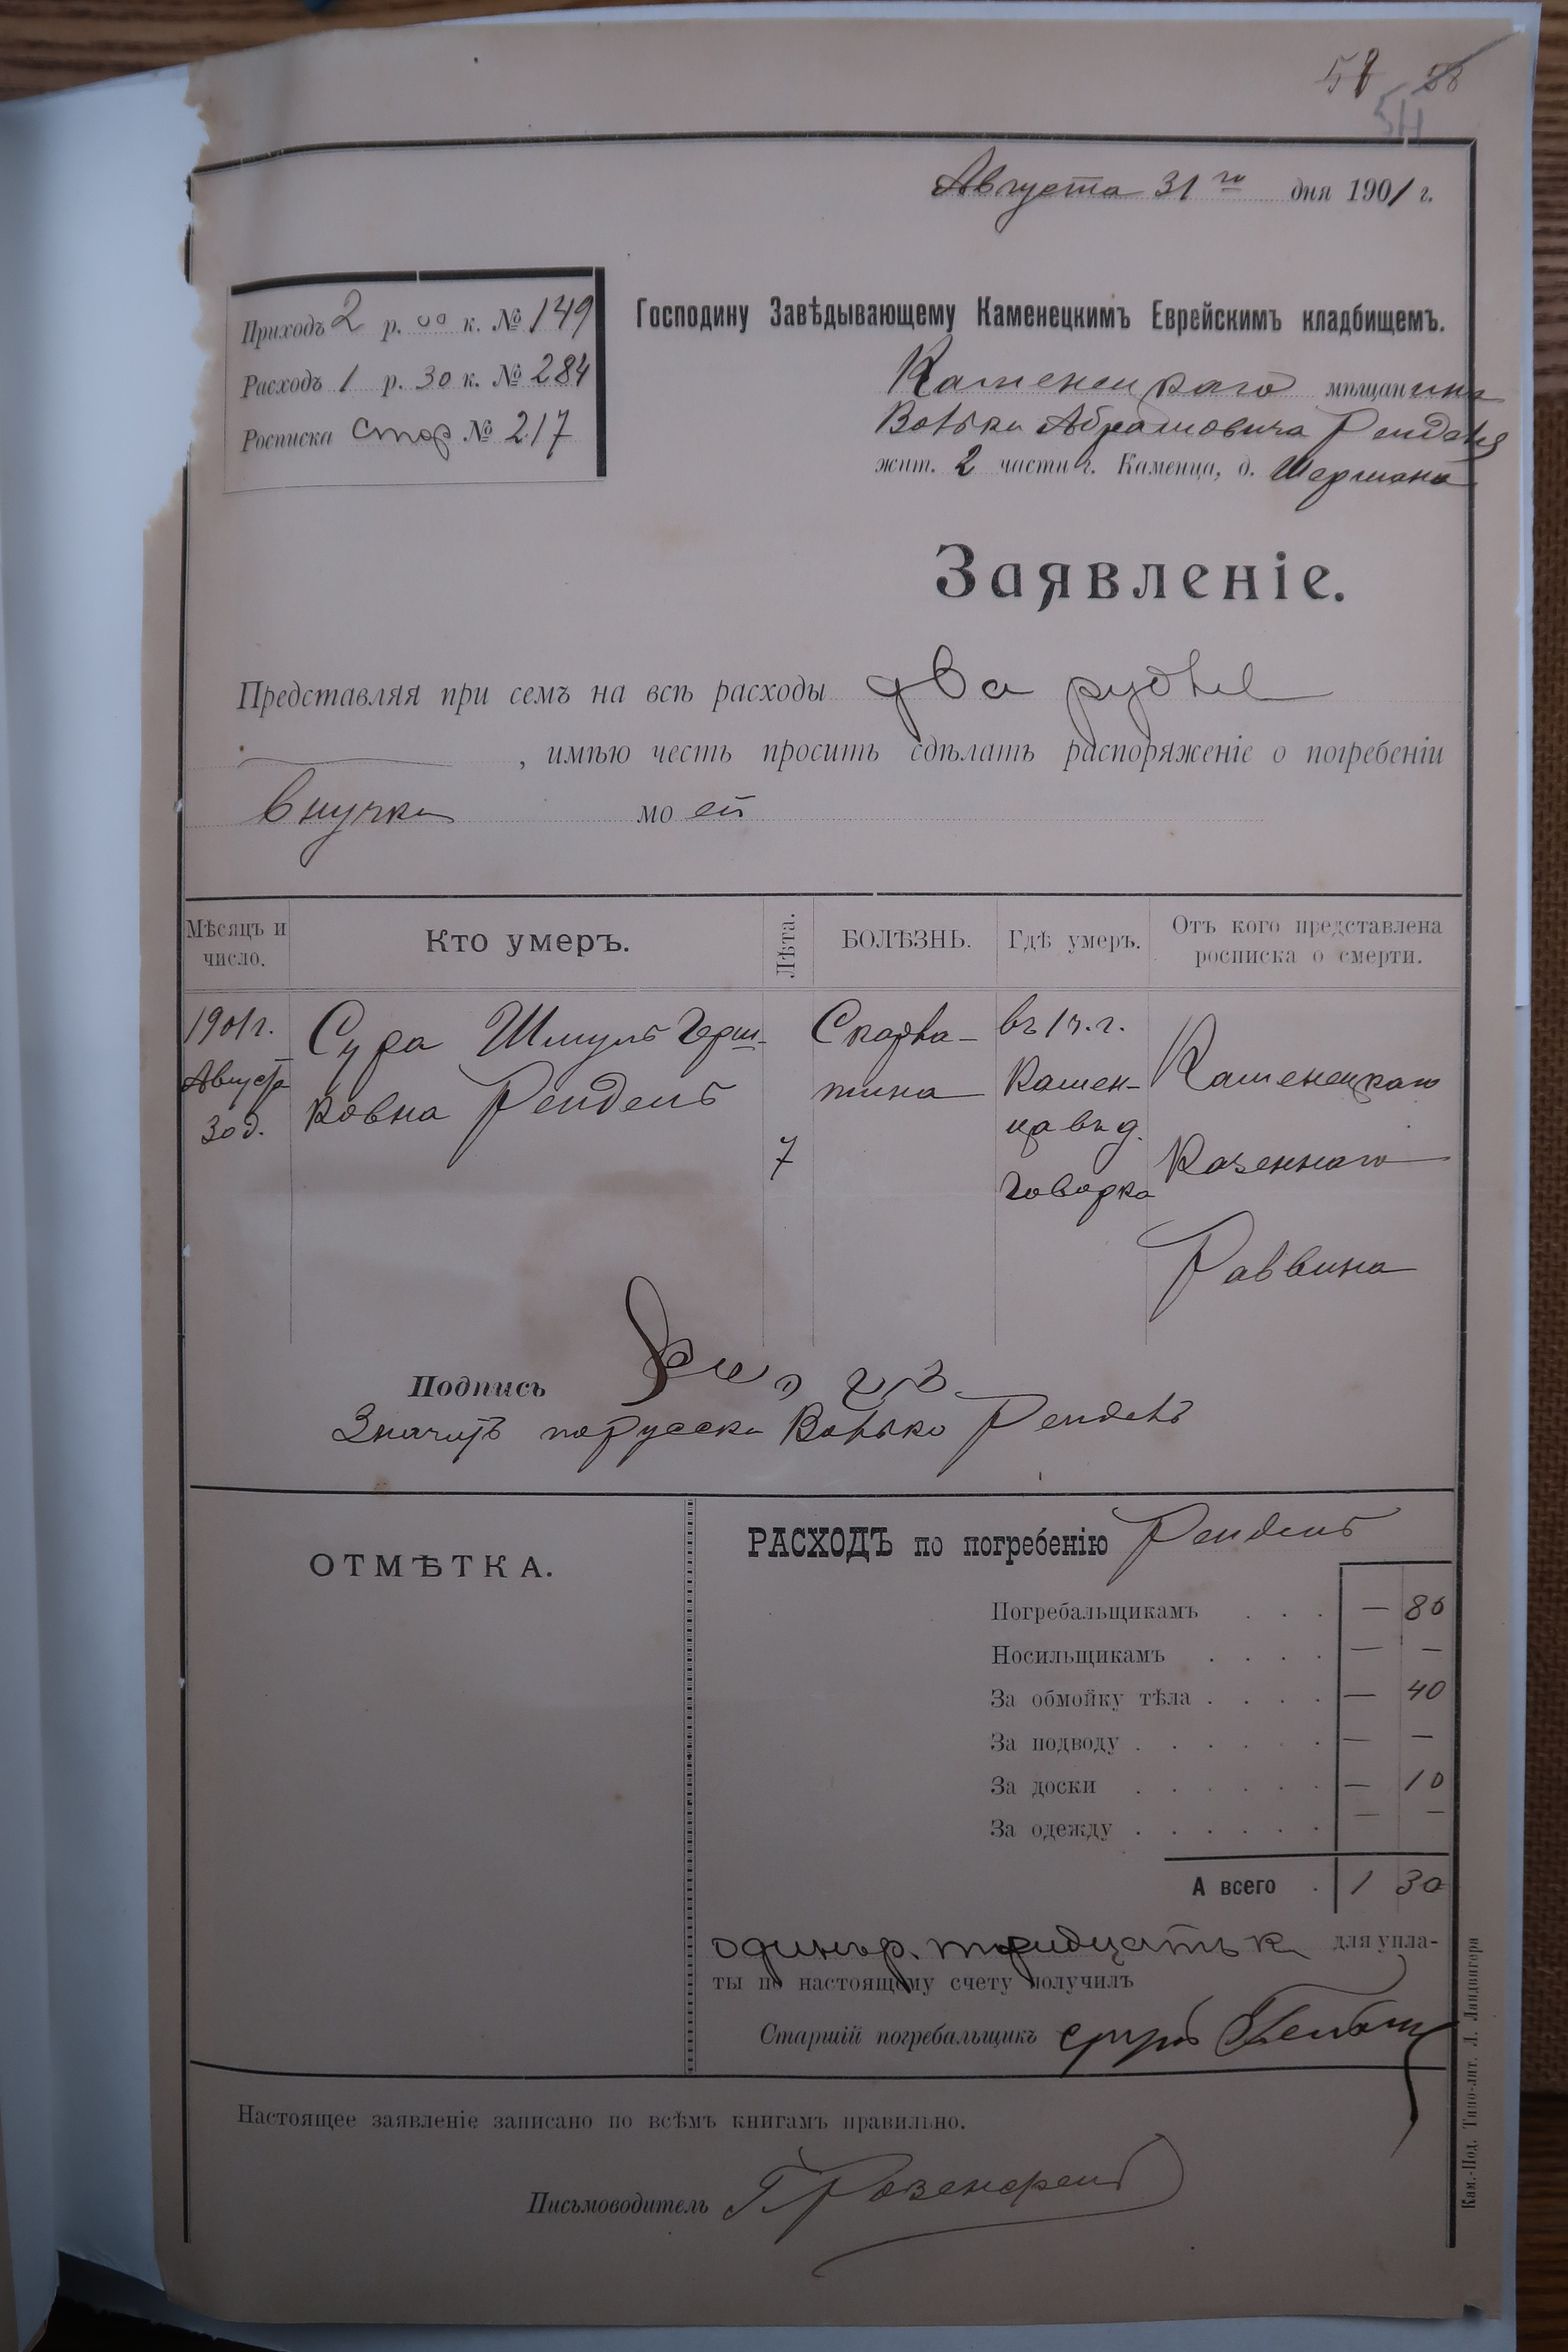 58 58
54
Августа 31го дня 1901 г.
Приходъ 2 р. 00 к. № 149
Расходъ 1 р. 30 к. № 284
Росписка стор № 217
Господину Завѣдывающему Каменецкимъ Еврейскимъ кладбищемъ.
Каменецкаго мѣщанина
Волька Абрамовича Рендель
жит. 2 части г. Каменца, д. Шермана
Заявленіе.
Представляя при семъ на всѣ расходы два рубле
, имѣю честь просить сдѣлать распоряженіе о погребеніи
внучки моей
Мѣсяцъ и число. Кто умеръ. Лѣта. БОЛѢЗНЬ. Гдѣ умеръ. Отъ кого представлена росписка о смерти.
1901 г. Сура Шмуль Герш- Скарла- въ 1 ч. г.
Августа ковна Рендель тина Камен- Каменецкаго
30 д. 7 ца въ д. Казеннаго
Говорка Раввина
Подпись
Значитъ порусски Волько Рендель
ОТМѢТКА.
РАСХОДЪ по погребенію Рендель
Погребальщикамъ . . . — 80
Носильщикамъ . . . . — —
За обмойку тѣла . . . . — 40
За подводу . . . . . — —
За доски . . . . . — 10
За одежду . . . . . . — —
А всего . 1 30
одинъ р. тридцать к для упла-
ты по настоящему счету получилъ
Старшій погребальщикъ
Настоящее заявленіе записано по всѣмъ книгамъ правильно.
Письмоводитель Г Розенфельд
Кам.-Под. Типо-лит. Л. Ландвигера